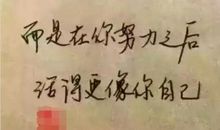 而是在你努力之后
活得更像你自己